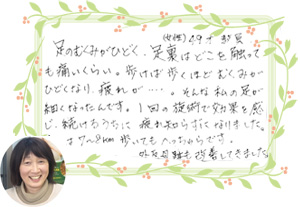 (女性) 49才 教員
足のむくみがひどく、足裏はどこを触って
も痛いくらい。歩けば歩くほどむくみが
ひどくなり、疲れが…。そんな私の足が
細くなったんです。1回の施術で効果を感
じ、続けるうちに疲れ知らずになりました。
7~8km歩いてもへっちゃらです。
外反母趾も改善してきました。